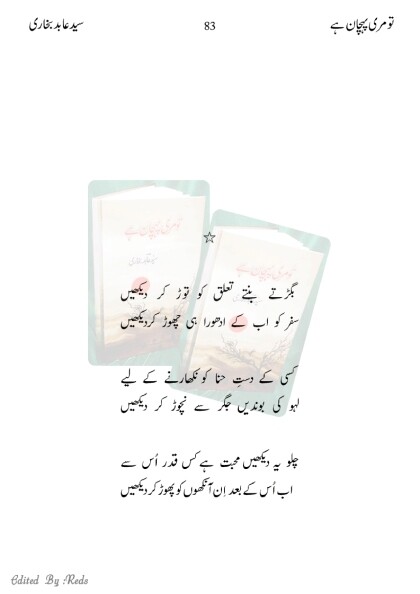 تو مری پہچان ہے
83
سید عابد بخاری
☆
بگڑتے بنتے تعلق کو توڑ کر دیکھیں
سفر کو اب کے ادھورا ہی چھوڑ کر دیکھیں
کسی کے دستِ حنا کو نکھارنے کے لیے
لہو کی بوندیں جگر سے نچوڑ کر دیکھیں
چلو یہ دیکھیں محبت ہے کس قدر اُس سے
اب اُس کے بعد اِن آنکھوں کو پھوڑ کر دیکھیں
Edited By Reds